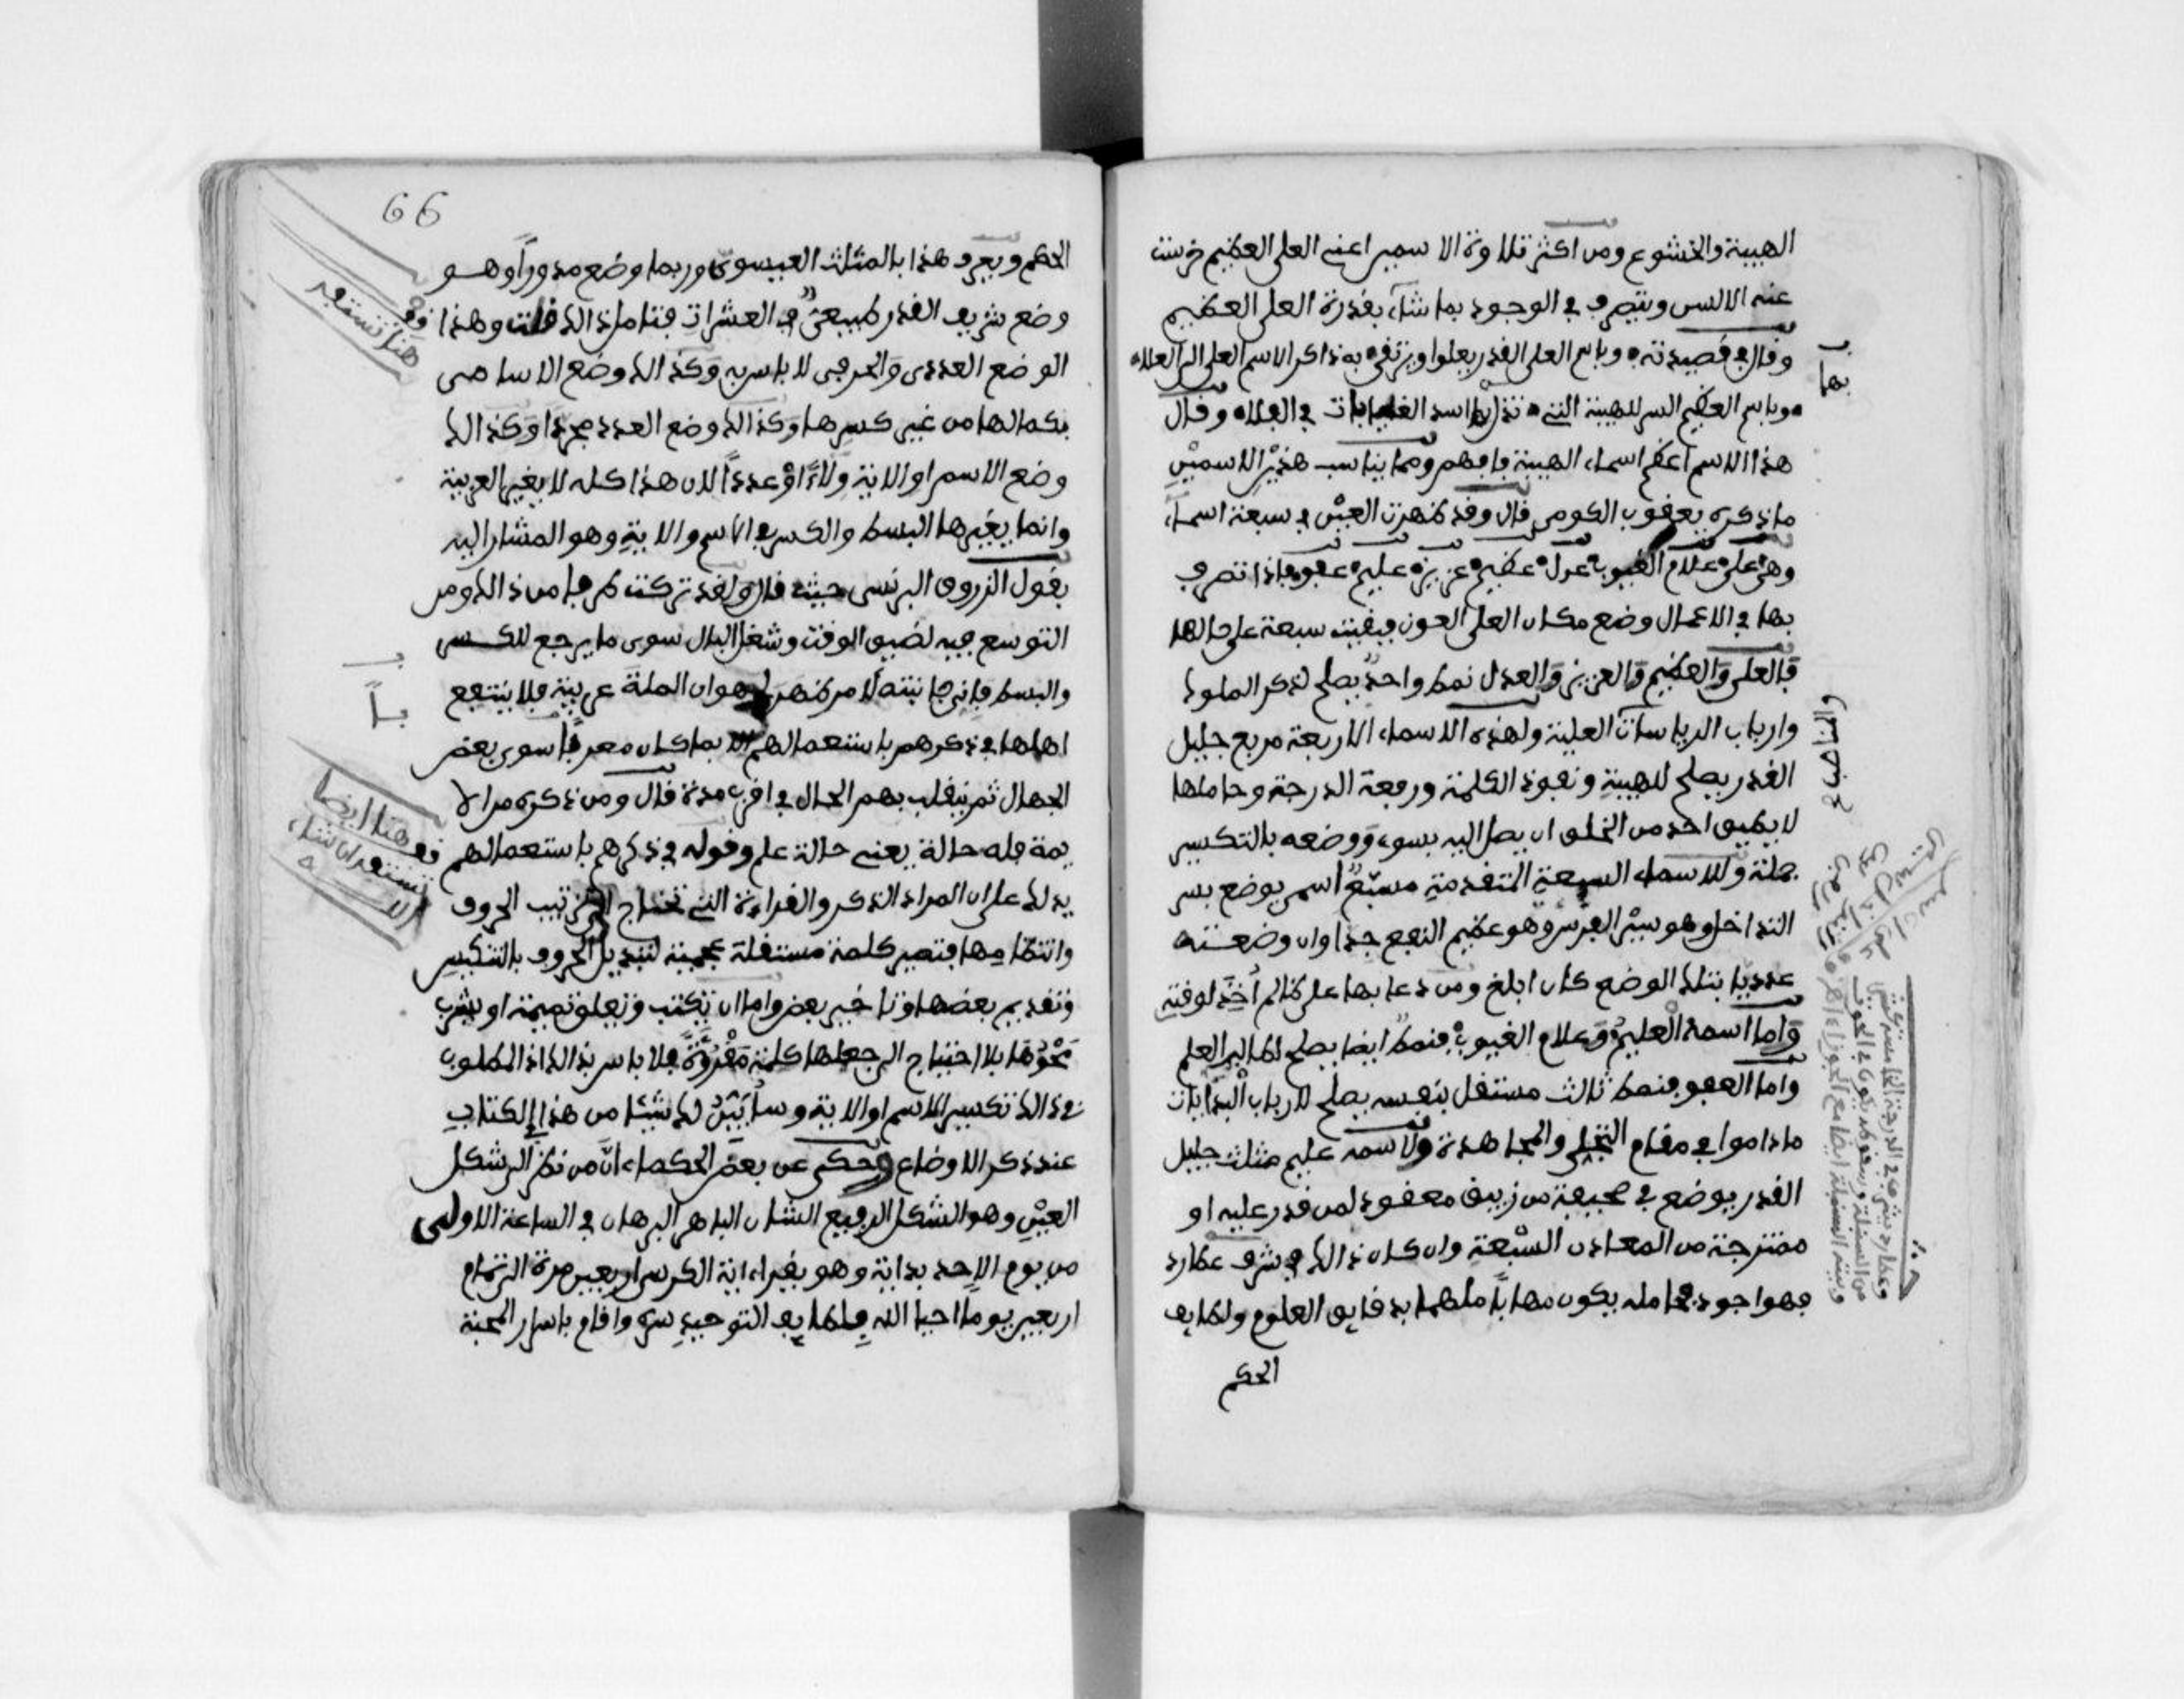 الهيبة والخشوع ومن اكثر تلاوة الاسمين اعني العلي العظيم خرست
عنه الالسن ويتصرف في الوجود بما شاء بقدرة العلي العظيم
وقال في قصيدته وباسم العلي القدر يعلوا ويرتقي به ذاكر الاسم العلي الى العلاء
وباسم العظيم السر للهيبة التي تذل اسد الغابات في الفلاء وقال
هذا الاسم اعظم اسماء الهيبة فافهم ومما يناسب هذين الاسمين
ما ذكره يعقوب الكومي قال وقد ظهرت العين في سبعة اسماء
وهي علي علام الغيوب عدل عظيم عزيز عليم عفو فاذا تصرف
بها في الاعمال وضع مكان العلي العون فبقيت سبعة على حالها
فالعلي والعظيم والعزيز والعدل نمط واحد يصلح لذكر الملوك
وارباب الرياسات العلية ولهذه الاسماء الاربعة مربع جليل
القدر يصلح للهيبة ونفوذ الكلمة ورفعة الدرجة وحاملها
لا يطيق احد من الخلق ان يصل اليه بسوء ووضعه بالتكسير
جملة وللاسماء السبعة المتقدمة مسبع اسمي يوضع بسر
التداخل وهو سير الفرس وهو عظيم النفع جدا وان وضعته
عدديا بتلك الوضع كان ابلغ ومن دعا بها على ظالم اخذ لوقته
واما اسمه العليم وعلام الغيوب فنمط ايضا يصلح لطالب العلم
واما العفو فنمط ثالث مستقل بنفسه يصلح لارباب البدايات
ما داموا في مقام التخلي والمجاهدة ولاسمه عليم مثلث جليل
القدر يوضع في صحيفة من زيبق معقود لمن قدر عليه او
ممتزجة من المعادن السبعة وان كان ذالك في شرف عطارد
فهو اجود فحامله يكون مهابا ملهما بدقايق العلوم ولطايف
الحكم
بها
66
الحكم ويعرف هذا بالمثلث العيسوي وربما وضع مدورا وهو
وضع شريف القدر طبيعي في العشرات فتامل ذالك قلت وهذا
الوضع العددي والحرفي لا باس به وكذالك وضع الاسامي
بكمالها من غير كسرها وكذالك وضع العدد مجردا وكذالك
وضع الاسم او الاية ولاء او عددا لان هذا كله لا يغير العربية
وانما يغيرها البسط والكسر في الاسم والاية وهو المشار اليه
بقول الزروق البرنسي حيث قال ولقد تركت طرفا من ذالك ومن
التوسع فيه لضيق الوقت وشغل البال سوى ما يرجع للكسر
والبسط فاني جانبته لامر ظهر لي وهو ان الملة عربية فلا ينتفع
اهلها في ذكرهم باستعمالهم الا بما كان معربا سوى بعض
الجهال ثم ينقلب بهم الحال في اقرب مدة قال ومن ذكره من الا
يمة فله حالة يعني حالة علم وقوله في ذكرهم باستعمالهم
يدلك على ان المراد الذكر والقراءة التي تحتاج الى ترتيب الحروف
وانتظامها فتصير كلمة مستقلة عجمية لتبديل الحروف بالتكسير
وتقديم بعضها وتاخير بعض واما ان تكتب وتعلق تميمة او يشرب
محوها بلا احتياج الى جعلها كلمة مقروة فلا باس بذالك اذ المطلوب
في ذالك تكسير الاسم او الاية وسابين لك شيئا من هذا في الكتاب
عند ذكر الاوضاع وحكي عن بعض الحكماء ان من نظر الى شكل
العين وهو الشكل الرفيع الشان الباهر البرهان في الساعة الاولى
من يوم الاحد بداية وهو يقرا اية الكرسي اربعين مرة الى تمام
اربعين يوما احيا الله بلطايف التوحيد سره واقام باسرار المحبة
قف هنا تستفد
قف هنا ايضا
تستفد ان شاء
الله